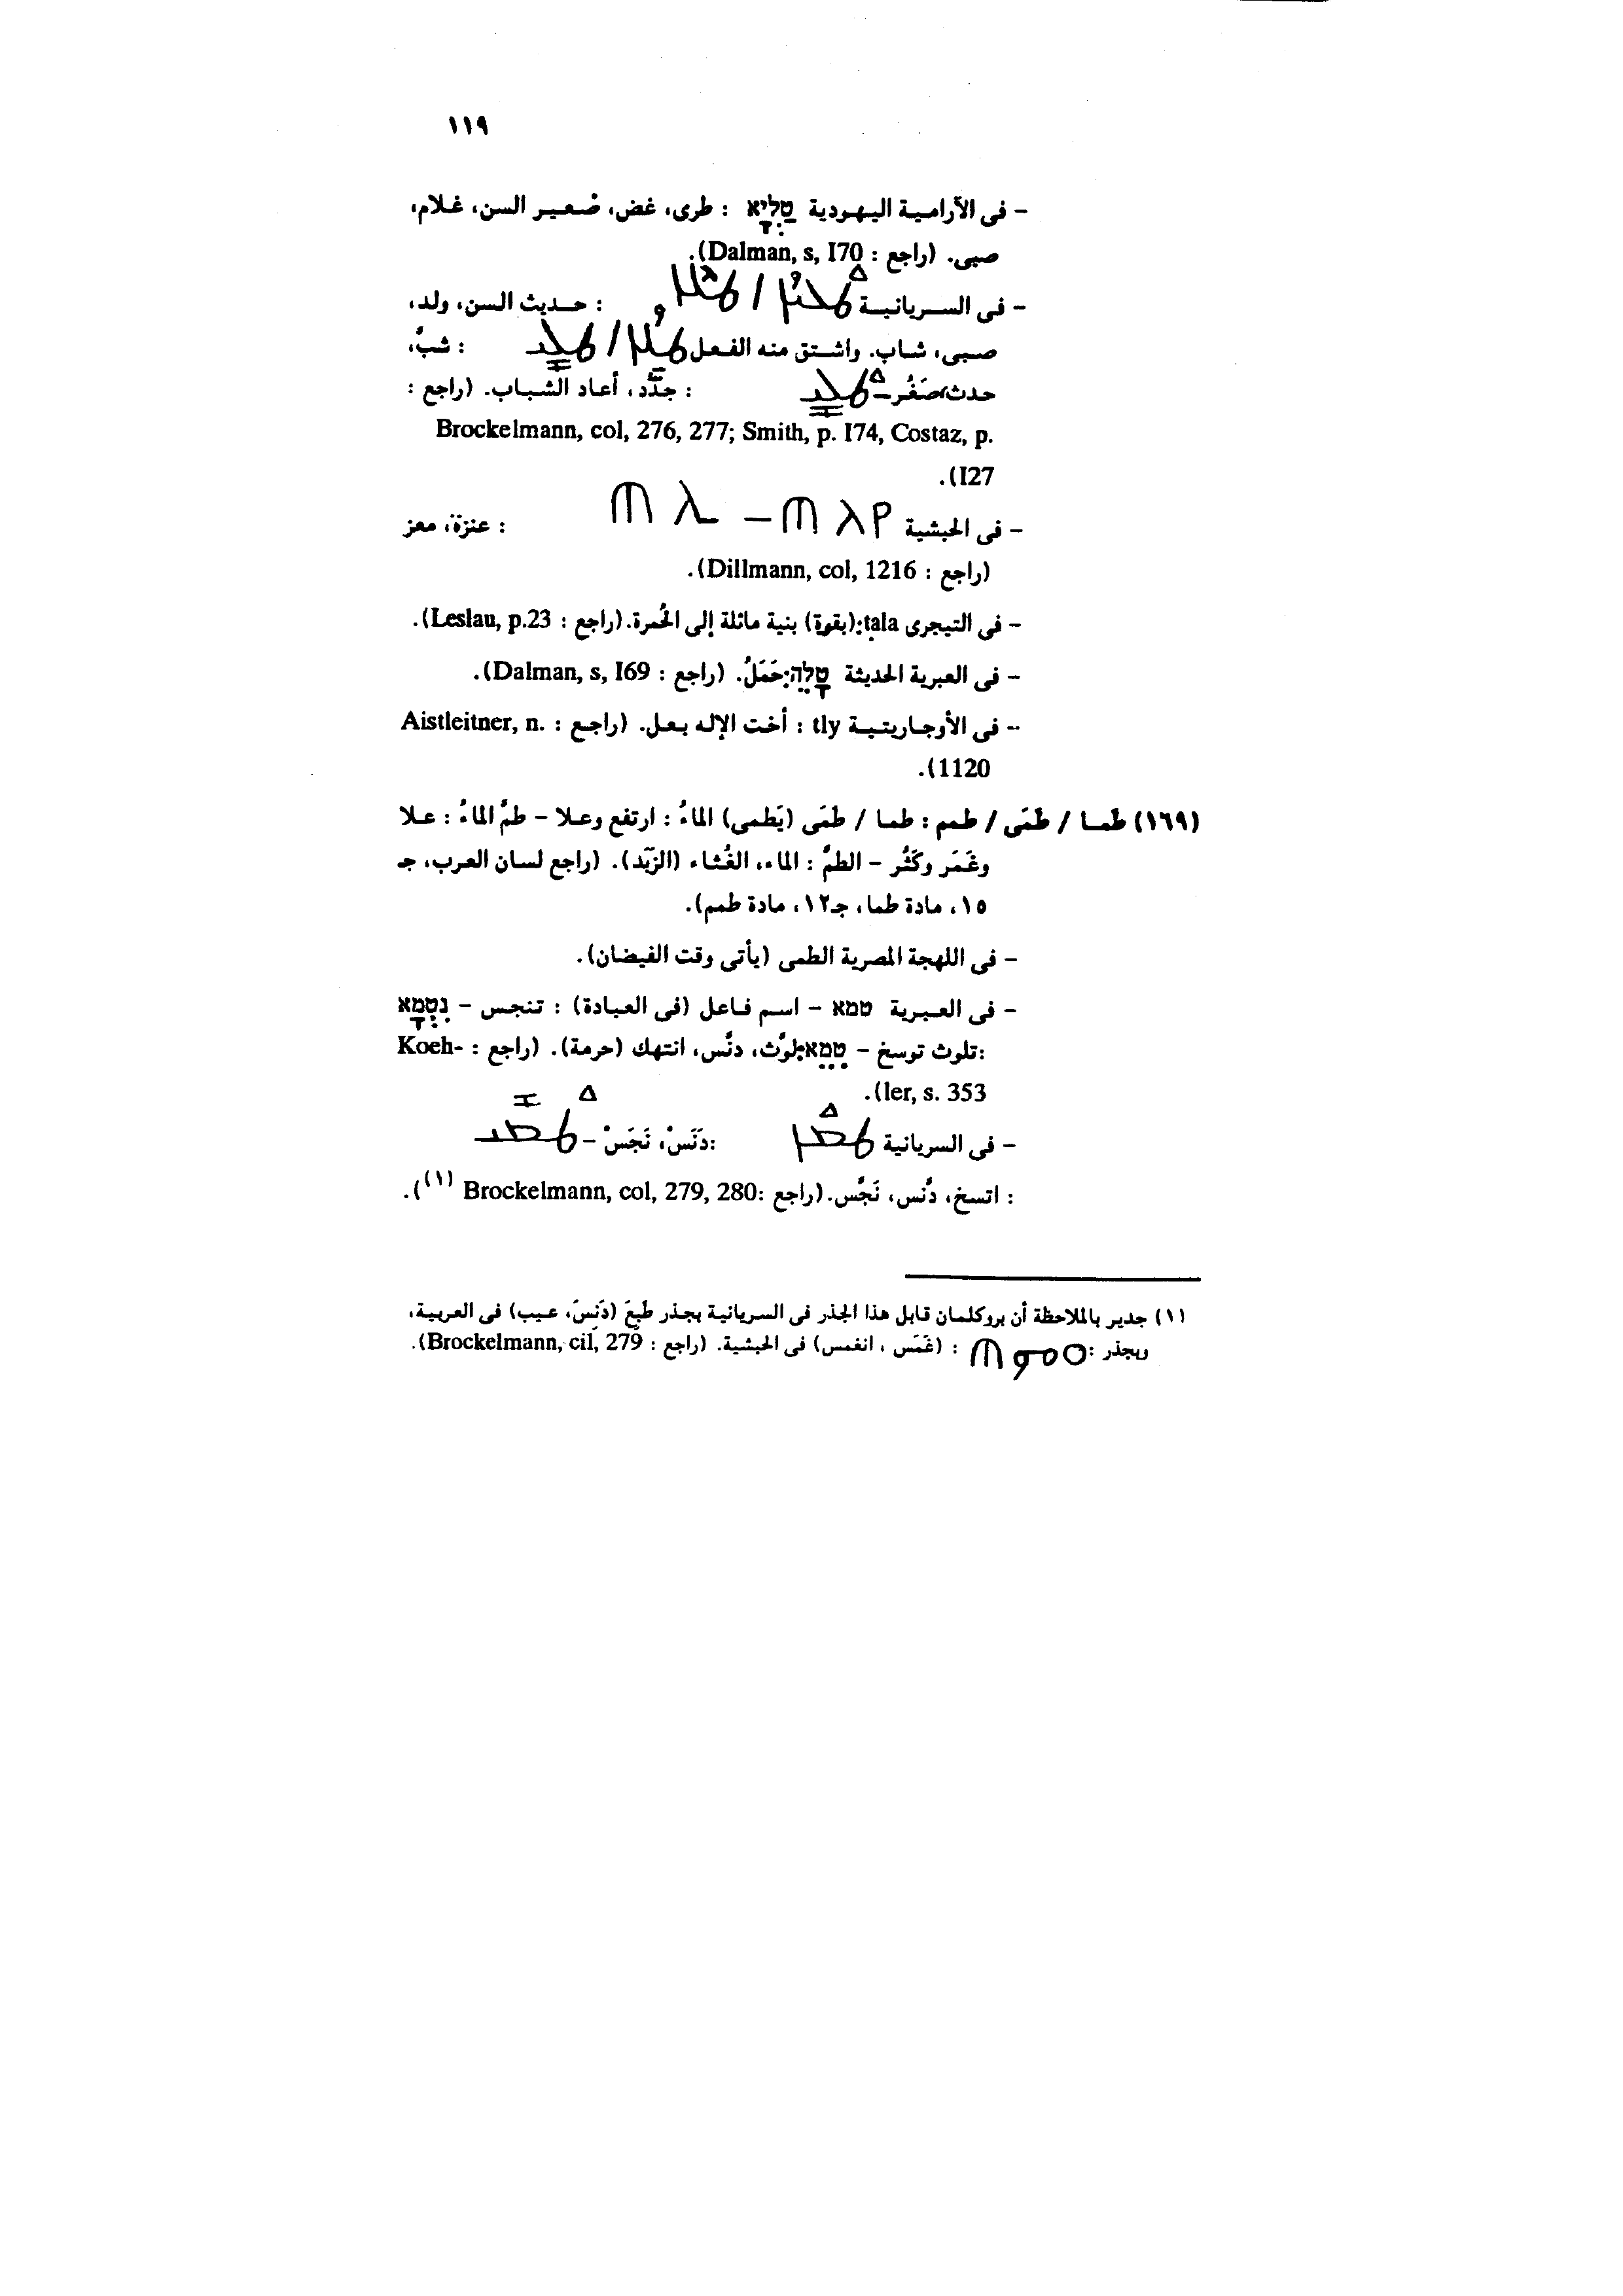 ١١٩
– فى الآرامية اليهودية טַלְיָא : طرى، غض، صْعير السن، غلام،
صبى. (راجع : Dalman, s, I70).
– فى السريانية : حديث السن، ولد،
صبى، شاب. واشتق منه الفعل : شبَّ،
حدث، صَغُر – : جدَّد، أعاد الشباب. (راجع :
Brockelmann, col, 276, 277; Smith, p. I74, Costaz, p.
I27).
– فى الحبشية : عنزة، معز
(راجع : Dillmann, col, 1216).
– فى التيجرى ṭala: (بقرة) بنية مائلة إلى الحُمرة. (راجع : Leslau, p.23).
– فى العبرية الحديثة טָלֶה: حَمَلُ. (راجع : Dalman, s, I69).
– فى الأوجاريتية tly : أخت الإله بعل. (راجع : Aistleitner, n.
1120).
(١٦٩) طما / طَمَى / طمم : طما / طمَى (يَطمى) الماءُ : ارتفع وعلا – طمَّ الماءُ : علا
وغَمَر وكَثُر – الطمُّ : الماء، الغُثاء (الزَبَد). (راجع لسان العرب، جـ
١٥، مادة طما، جـ١٢، مادة طمم).
– فى اللهجة المصرية الطمى (يأتى وقت الفيضان).
– فى العبرية טמא – اسم فاعل (فى العبادة) : تنجس – נִטְמָא
:تلوث توسخ – טִמֵּא:لوَّث، دنَّس، انتهك (حرمة). (راجع : Koeh-
ler, s. 353).
– فى السريانية :دَنَسْ، نَجَسْ –
: اتسخ، دُنس، نَجُس. (راجع :Brockelmann, col, 279, 280 (١)).
(١) جدير بالملاحظة أن بروكلمان قابل هذا الجذر فى السريانية بجذر طَبِعَ (دَنِسَ، عيب) فى العربية،
وبجذر : : (غَمَس ، انغمس) فى الحبشية. (راجع : Brockelmann, cil, 279).